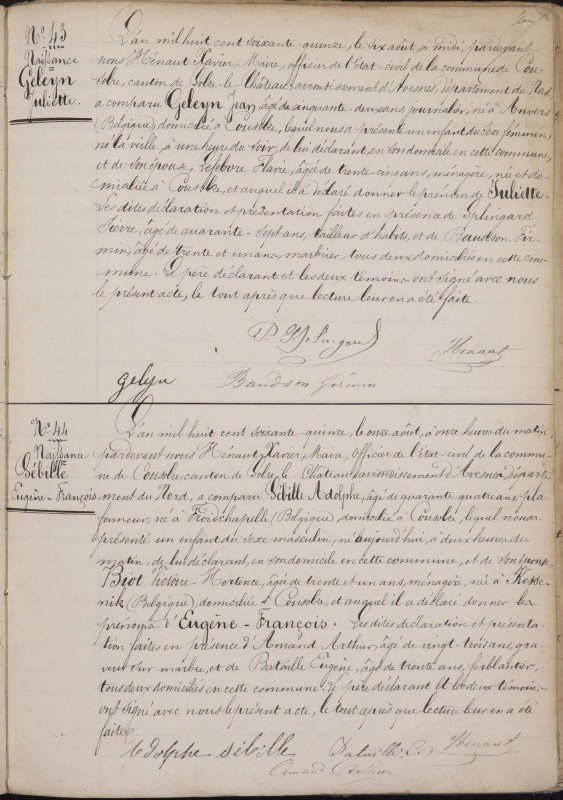 N° 43
Naissance
Geleyn
Juliette.
L'an mil huit cent soixante-quinze, le six août, à midi, pardevant
nous Hénaut Xavier, Maire, officier de l'état-civil de la commune de Cou-
solre, canton de Solre-le-Château, arrondissement d'Avesnes, Département du Nord
a comparu Geleyn Jean, âgé de cinquante-deux ans, journalier, né à Anvers
(Belgique), domicilié à Cousolre, lequel nous a présenté un enfant du sexe féminin,
né la veille, à une heure du soir, de lui déclarant, en son domicile en cette commune,
et de son épouse, Lefebvre Flavie, âgée de trente-cinq ans, ménagère, née et do-
miciliée à Cousolre, et auquel il a déclaré donner le prénom de Juliette.
Les dites déclaration et présentation faites en présence de Splingard
Pierre, âgé de quarante-sept ans, tailleur d'habits, et de Baudson Fir-
min, âgé de trente et un ans, marbrier, tous deux domiciliés en cette com-
mune. Le père déclarant et les deux témoins ont signé avec nous
le présent acte, le tout après que lecture leur en a été faite.
P. Splingard
Hénaut
gelyn
Baudson firmin
N° 44
Naissance
Sébille
Eugène-François
L'an mil huit cent soixante-quinze, le onze août, à onze heures du matin,
pardevant nous Hénaut Xavier, Maire, Officier de l'état-civil de la commu-
ne de Cousolre, canton de Solre-le-Château, arrondissement d'Avesnes, Départe-
ment du Nord, a comparu Sébille Adolphe, âgé de quarante quatre ans, pla-
fonneur, né à Froidchapelle (Belgique), domicilié à Cousolre, lequel nous a
présenté un enfant du sexe masculin, né aujourd'hui, à deux heures du
matin, de lui déclarant, en son domicile en cette commune, et de son épouse
Biot Victoire-Hortence, âgée de trente et un ans, ménagère, née à Resse-
nik (Belgique), domiciliée à Cousolre, et auquel il a déclaré donner les
prénoms d'Eugène-François. Les dites déclaration et présenta-
tion faites en présence d'Amand Arthur, âgé de vingt-trois ans, gra-
veur sur marbre, et de Bataille Eugène, âgé de trente ans, ferblantier,
tous deux domiciliés en cette commune. Le père déclarant et les deux témoins
ont signé avec nous le présent acte, le tout après que lecture leur en a été
faite.
Adolphe sébille
Bataille
Hénaut
Amand Arthur